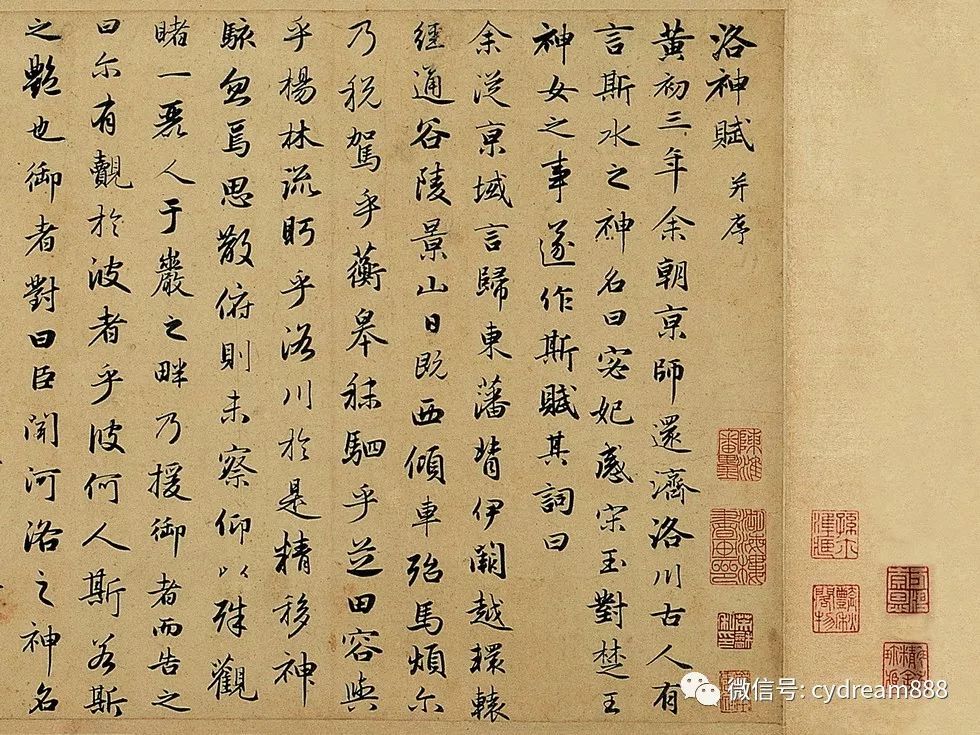 洛神賦 并序
黄初三年余朝京師還濟洛川古人有
言斯水之神名曰宓妃感宋玉對楚王
神女之事遂作斯賦其詞曰
余從京域言歸東藩背伊闕越環轅
經通谷陵景山日既西傾車殆馬煩尔
乃税駕乎蘅皋秣駟乎芝田容與
乎楊林流眄乎洛川於是精移神
駭忽焉思散俯則未察仰以殊觀
睹一麗人于巖之畔乃援御者而告之
曰尔有覿於彼者乎彼何人斯若斯
之艷也御者對曰臣聞河洛之神名
微信号: cydream888